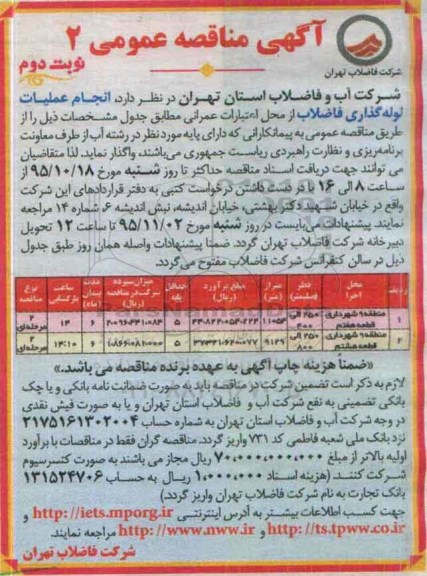 آگهی مناقصه عمومی ۲
نوبت دوم
شرکت فاضلاب تهران
شرکت آب و فاضلاب استان تهران در نظر دارد، انجام عملیات
لوله‌گذاری فاضلاب از محل اعتبارات عمرانی مطابق جدول مشخصات ذیل را از
طریق مناقصه عمومی به پیمانکارانی که دارای پایه مورد نظر در رشته آب از طرف معاونت
برنامه‌ریزی و نظارت راهبردی ریاست جمهوری می‌باشند، واگذار نماید. لذا متقاضیان
می توانند جهت دریافت اسناد مناقصه حداکثر تا روز شنبه مورخ ۹۵/۱۰/۱۸ از
ساعت ۸ الی ۱۶ با در دست داشتن درخواست کتبی به دفتر قراردادهای این شرکت
واقع در خیابان شهید دکتر بهشتی، خیابان اندیشه، نبش اندیشه ۶، شماره ۱۴ مراجعه
نمایند. پیشنهادات می‌بایست در روز شنبه مورخ ۹۵/۱۱/۰۲ تا ساعت ۱۲ تحویل
دبیرخانه شرکت فاضلاب تهران گردد. ضمنا پیشنهادات واصله همان روز طبق جدول
ذیل در سالن کنفرانس شرکت فاضلاب مفتوح می‌گردد.
ردیف محل اجرا قطر (میلیمتر) متراژ (متر) مبلغ برآورد (ریال) حداقل پایه میزان سپرده شرکت در مناقصه (ریال) مدت پیمان (ماه) ساعت بازگشایی نوع مناقصه
۱ منطقه ۹ شهرداری قطعه هفتم ۲۵۰ الی ۴۰۰ ۱۱۰۵۴ ۵ ۶ ۱۴ ۲ مرحله‌ای
۲ منطقه ۹ شهرداری قطعه هشتم ۲۵۰ الی ۸۰۰ ۹۱۲۹ ۵ ۶ ۱۴:۱۰ ۲ مرحله‌ای
«ضمناً هزینه چاپ آگهی به عهده برنده مناقصه می باشد.»
لازم به ذکر است تضمین شرکت در مناقصه باید به صورت ضمانت نامه بانکی و یا چک
بانکی تضمینی به نفع شرکت آب و فاضلاب استان تهران و یا به صورت فیش نقدی
در وجه شرکت آب و فاضلاب استان تهران به شماره حساب ۲۱۷۵۱۶۱۳۰۲۰۰۴
نزد بانک ملی شعبه فاطمی کد ۷۳۱ واریز گردد. مناقصه گران فقط در مناقصات با برآورد
اولیه بالاتر از مبلغ ۷۰,۰۰۰,۰۰۰,۰۰۰ ریال مجاز می باشند به صورت کنسرسیوم
شرکت کنند. (هزینه اسناد ۱,۰۰۰,۰۰۰ ریال به حساب ۱۳۱۵۲۴۷۰۶
بانک تجارت به نام شرکت فاضلاب تهران واریز گردد)
جهت کسب اطلاعات بیشتر به آدرس اینترنتی http://iets.mporg.ir و
http://ts.tpww.co.ir و http://www.nww.ir مراجعه نمایند.
شرکت فاضلاب تهران